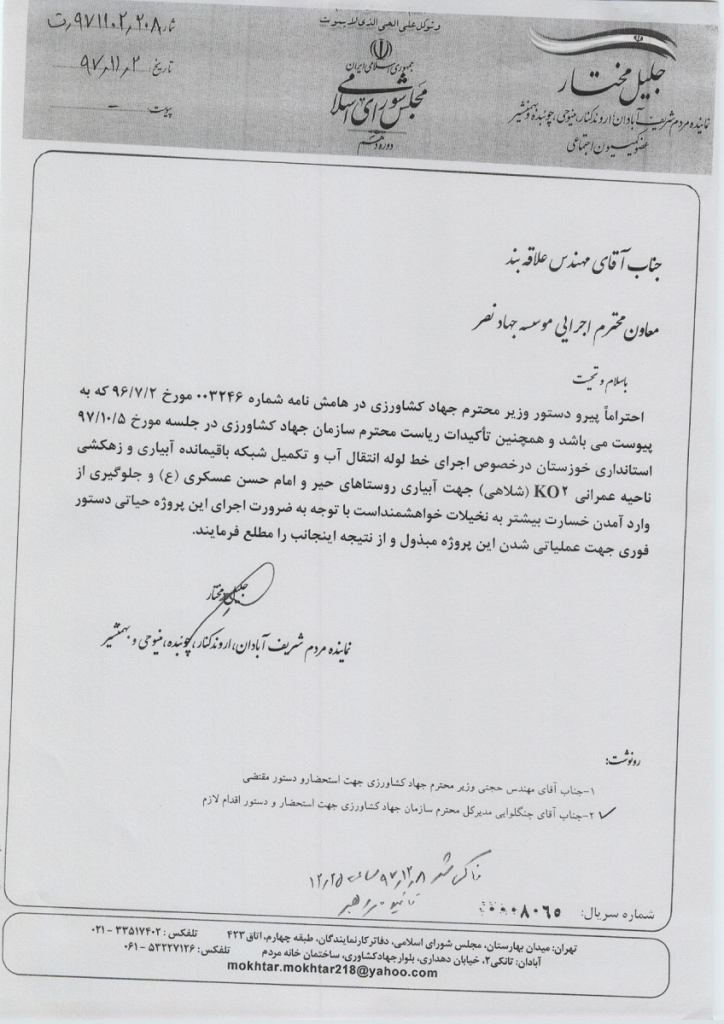 وتوکل علی الحی الذی لا یموت
جمهوری اسلامی ایران
مجلس شورای اسلامی
دوره دهم
جلیل مختار
نماینده مردم شریف آبادان، اروندکنار، مینوحی، چوئبده و بهمنشیر
عضو کمیسیون اجتماعی
تاریخ ۹۷٫۱۱٫۲
پیوست –
جناب آقای مهندس علاقه بند
معاون محترم اجرایی موسسه جهاد نصر
باسلام و تحیت
احتراماً پیرو دستور وزیر محترم جهاد کشاورزی در هامش نامه شماره ۰۰۳۲۴۶ مورخ ۹۶/۷/۲ که به
پیوست می باشد و همچنین تأکیدات ریاست محترم سازمان جهاد کشاورزی در جلسه مورخ ۹۷/۱۰/۵
استانداری خوزستان درخصوص اجرای خط لوله انتقال آب و تکمیل شبکه باقیمانده آبیاری و زهکشی
ناحیه عمرانی KO۲ (شلاهی) جهت آبیاری روستاهای حیر و امام حسن عسکری (ع) و جلوگیری از
وارد آمدن خسارت بیشتر به نخیلات خواهشمنداست با توجه به ضرورت اجرای این پروژه حیاتی دستور
فوری جهت عملیاتی شدن این پروژه مبذول و از نتیجه اینجانب را مطلع فرمایند.
جلیل مختار
نماینده مردم شریف آبادان، اروندکنار، چوئبده، مینوحی و بهمنشیر
رونوشت:
۱-جناب آقای مهندس حجتی وزیر محترم جهاد کشاورزی جهت استحضارو دستور مقتضی
۲-جناب آقای چنگلوایی مدیرکل محترم سازمان جهاد کشاورزی جهت استحضار و دستور اقدام لازم
فاکس شد ۹۷٫۱۲٫۸ ساعت ۱۲٫۲۵
شماره سریال: ۰۰۰۰۸۰۶۵
تهران: میدان بهارستان، مجلس شورای اسلامی، دفاتر کارنمایندگان، طبقه چهارم، اتاق ۴۲۳ تلفکس: ۳۳۵۱۷۴۰۲ - ۰۲۱
آبادان: تانکی۲، خیابان دهداری، بلوار جهادکشاوری، ساختمان خانه مردم تلفکس: ۵۳۲۲۷۱۲۶ - ۰۶۱
mokhtar.mokhtar218@yahoo.com